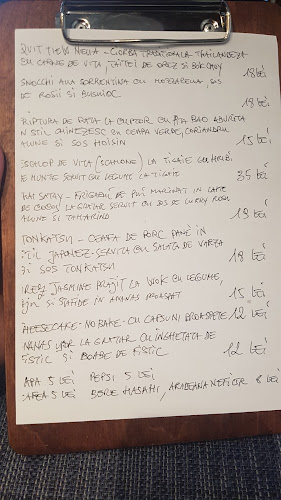 QUIT TIEW NEUA - CIORBA TRADITIONALA THAILANDEZA
CU CARNE DE VITA, TAITEI DE OREZ SI BOK CHOY
18 LEI
GNOCCHI ALLA SORRENTINA CU MOZZARELLA, SOS
DE ROSII SI BUSUIOC
18 LEI
FRIPTURA DE RATA LA CUPTOR CU PITA BAO ABURITA
N STIL CHINEZESC CU CEAPA VERDE, CORIANDRU
ALUNE SI SOS HOISIN
15 LEI
ESCALOP DE VITA (SCALLONE) LA TIGAIE CU HRIBI
DE MUNTE SERVIT CU LEGUME LA TIGAIE
35 LEI
HAI SATAY - FRIGARUI DE PUI MARINAT IN LAPTE
DE COCOS LA GRATAR SERVIT CU SOS DE CURRY ROSU
ALUNE SI TAMARIND
19 LEI
TONKATSU - CEAFA DE PORC PANE IN
STIL JAPONEZ - SERVITA CU SALATA DE VARZA
SI SOS TONKATSU
18 LEI
OREZ JASMINE PRAJIT LA WOK CU LEGUME,
SI STAFIDE IN ANANAS PROASPAT
15 LEI
CHEESECAKE - NO BAKE - CU CAPSUNI PROASPETE 12 LEI
ANANAS LA GRATAR CU INGHETATA DE
FISTIC SI BOABE DE FISTIC
12 LEI
APA 5 LEI PEPSI 5 LEI
CAFEA 5 LEI BERE HASAHI, 8 LEI